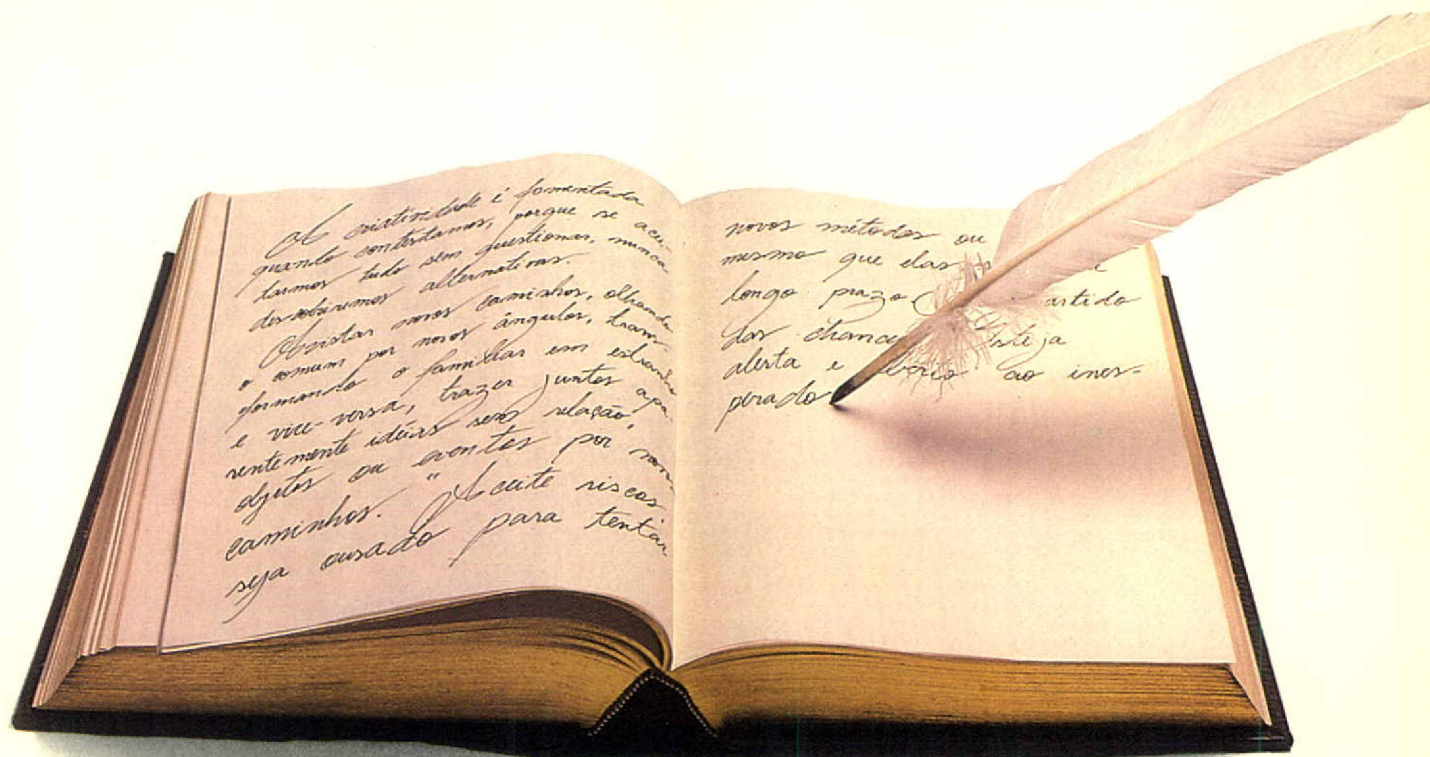 A criatividade é fomentada
quando contestamos, porque se acei-
tarmos tudo sem questionar, nunca
descobriremos alternativas.
Avistar novos caminhos, olhando
o comum por novos ângulos, trans-
formando o familiar em estranho
e vice-versa, trazer juntos apa-
rentemente idéias sem relação,
objetos ou eventos por novos
caminhos. "Aceite riscos
seja ousado para tentar
novos métodos ou
mesmo que elas
longo prazo
das chances
alerta e ao ines-
perado